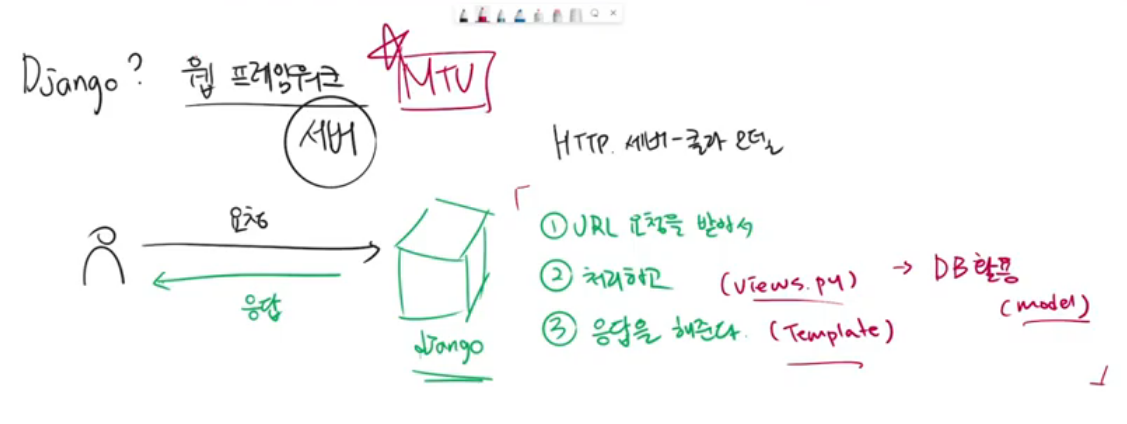 Django? 웹 프레임워크 MTU
서버
HTTP. 서버-클라 모델
요청
응답
django
① URL 요청을 받아서
② 처리하고 (views.py) → DB 활용
(model)
③ 응답을 해준다. (Template)